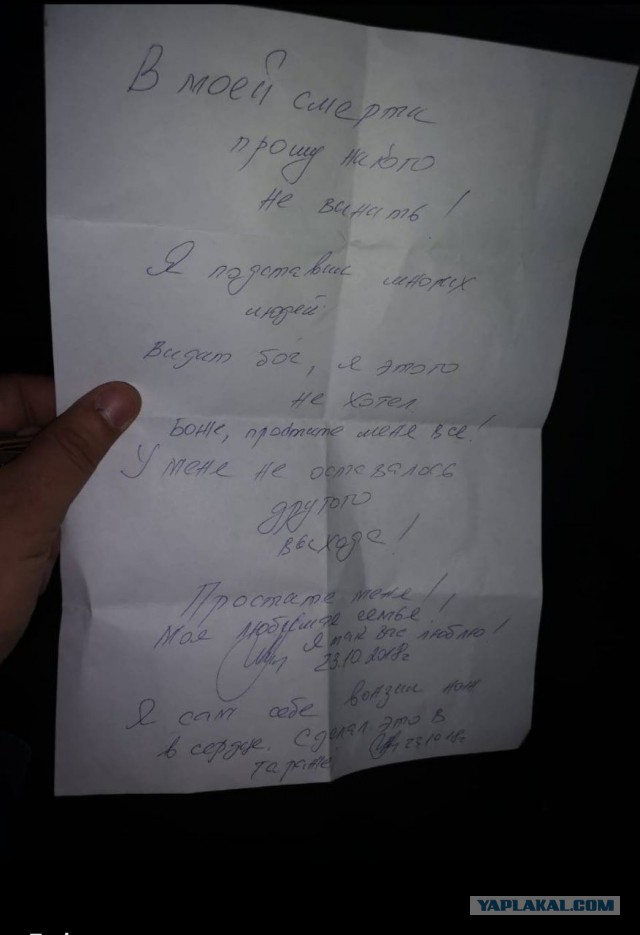 В моей смерти
прошу никого
не винить!
Я подставил многих
людей.
Видит бог, я этого
не хотел
Боже, простите меня все!
У меня не оставалось
другого
выхода!
Простите меня!
Моя любимая семья!
Я так вас люблю!
23.10.2018г
Я сам себе вонзил нож
в сердце. Сделал это в
гараже. 23.10.18г
YAPLAKAL.COM